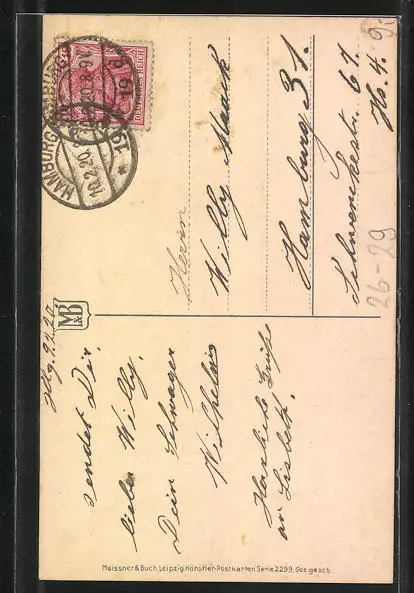 Hbg. 9.2.20.
sendet Dir,
lieber Willy,
Dein Schwager
Wilhelm
Herzliche Grüße
an Lisbeth.
M&B
DEUTSCHES REICH
HAMBURG
10.2.20.
Herrn
Willy
Hamburg 31.
Schwenckestr. 67
Hs. 4.
26-29
Meissner & Buch, Leipzig. Künstler-Postkarten Serie 2299. Ges. gesch.